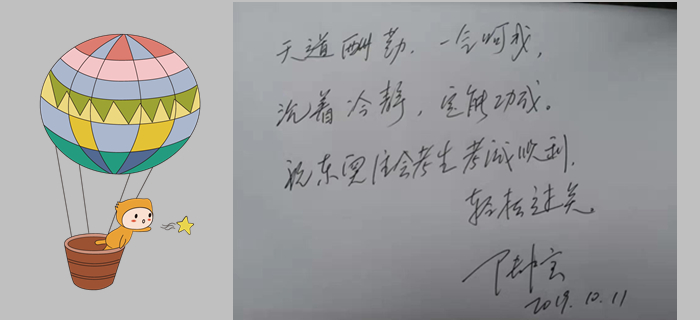 天道酬勤，一
沉着冷静，定能功成。
祝东奥注会考生考试顺利，
轻松过关
2019.10.11